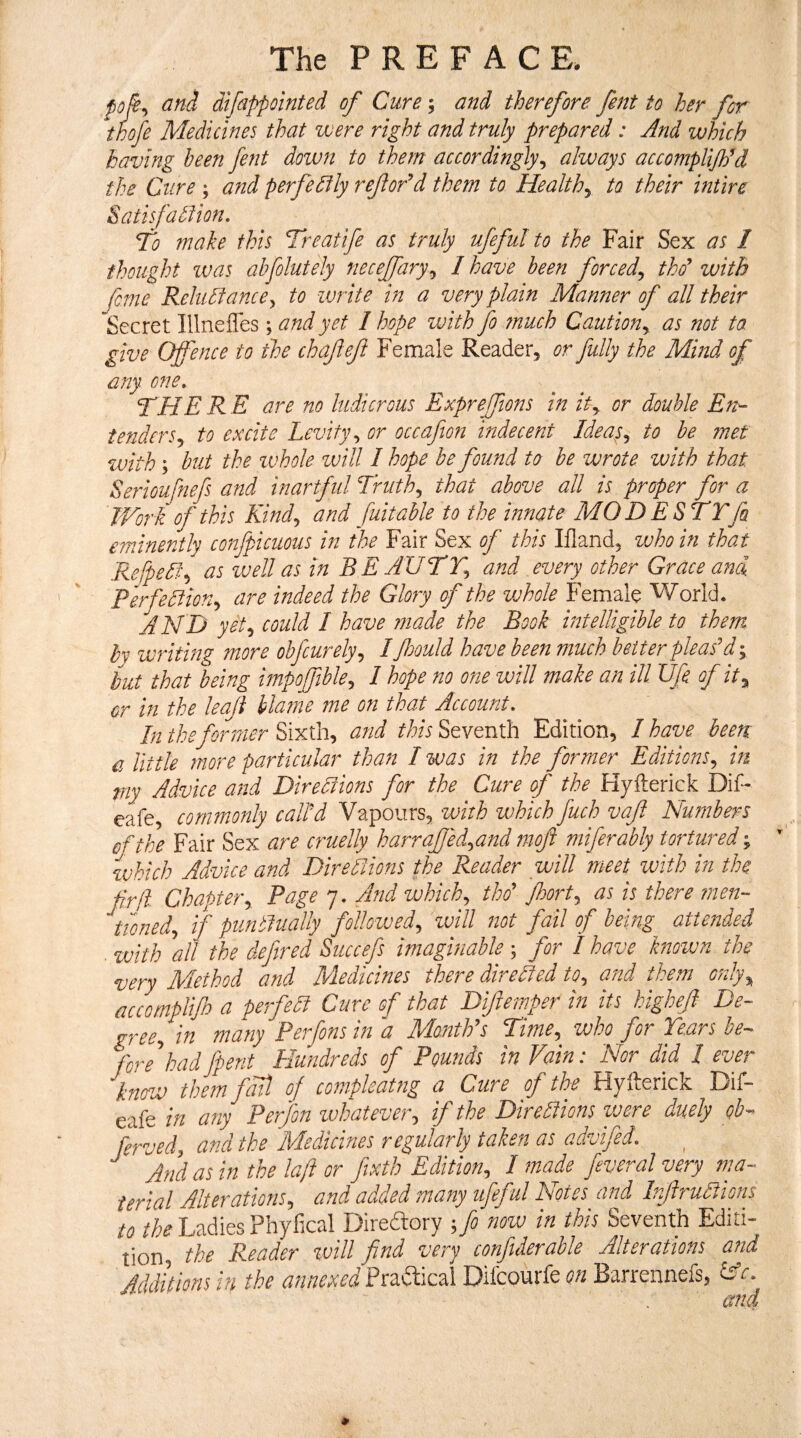 The PREFACE.
poſe, and diſappointed of Cure; and therefore ſent to her for
thoſe Medicines that were right and truly prepared: And which
having been ſent down to them accordingly, always accompliſh'd
the Cure; and perfectly reſtor'd them to Health, to their intire
Satisfaction.
To make this Treatiſe as truly uſeful to the Fair Sex as I
thought was abſolutely neceſſary, I have been forced, tho' with
ſome Reluctance, to write in a very plain Manner of all their
Secret Illneſſes; and yet I hope with ſo much Caution, as not to
give Offence to the chaſteſt Female Reader, or ſully the Mind of
any one.
THERE are no ludicrous Expreſſions in it, or double En-
tenders, to excite Levity, or occaſion indecent Ideas, to be met
with; but the whole will I hope be found to be wrote with that
Seriouſneſs and inartful Truth, that above all is proper for a
Work of this Kind, and ſuitable to the innate MODESTY ſo
eminently conſpicuous in the Fair Sex of this Iſland, who in that
Reſpect, as well as in BEAUTY, and every other Grace and
Perfection, are indeed the Glory of the whole Female World.
AND yet, could I have made the Book intelligible to them
by writing more obſcurely, I ſhould have been much better pleas'd;
but that being impoſſible, I hope no one will make an ill Uſe of it,
or in the leaſt blame me on that Account.
In the former Sixth, and this Seventh Edition, I have been
a little more particular than I was in the former Editions, in
my Advice and Directions for the Cure of the Hyſterick Diſ-
eaſe, commonly call'd Vapours, with which ſuch vaſt Numbers
of the Fair Sex are cruelly harraſſed, and moſt miſerably tortured;
which Advice and Directions the Reader will meet with in the
firſt Chapter, Page 7. And which, tho' ſhort, as is there men-
tioned, if punctually followed, will not fail of being attended
with all the deſired Succeſs imaginable; for I have known the
very Method and Medicines there directed to, and them only,
accompliſh a perfect Cure of that Diſtemper in its higheſt De-
gree, in many Perſons in a Month's Time, who for Years be-
fore had ſpent Hundreds of Pounds in Vain: Nor did I ever
know them fail of compleatng a Cure of the Hyſterick Diſ-
eaſe in any Perſon whatever, if the Directions were duely ob-
ſerved, and the Medicines regularly taken as adviſed.
And as in the laſt or ſixth Edition, I made ſeveral very ma-
terial Alterations, and added many uſeful Notes and Inſtructions
to the Ladies Phyſical Directory; ſo now in this Seventh Editi-
tion, the Reader will find very conſiderable Alterations and
Additions in the annexed Practical Diſcourſe on Barrenneſs, &c.
and